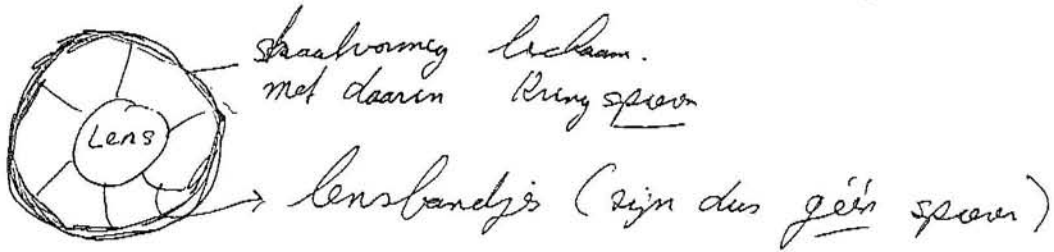 straalvormig lichaam.
met daarin Kringspieren
Lens
lensbandjes (zijn dus géén spieren)